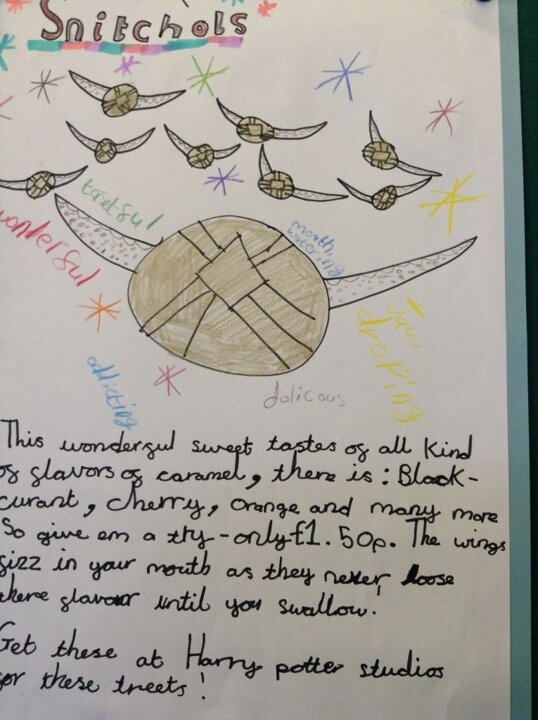 Snitchols
tastful
wonderful
mouth
watering
Jaw
droping
addicting
dalicous
This wonderful sweet tastes of all kind
of flavors of caramel, there is: Black-
curant, cherry, orange and many more
So give em a try - only £1.50p. The wings
fizz in your mouth as they never loose
there flavour until you swallow!
Get these at Harry potter studios
for these treets!